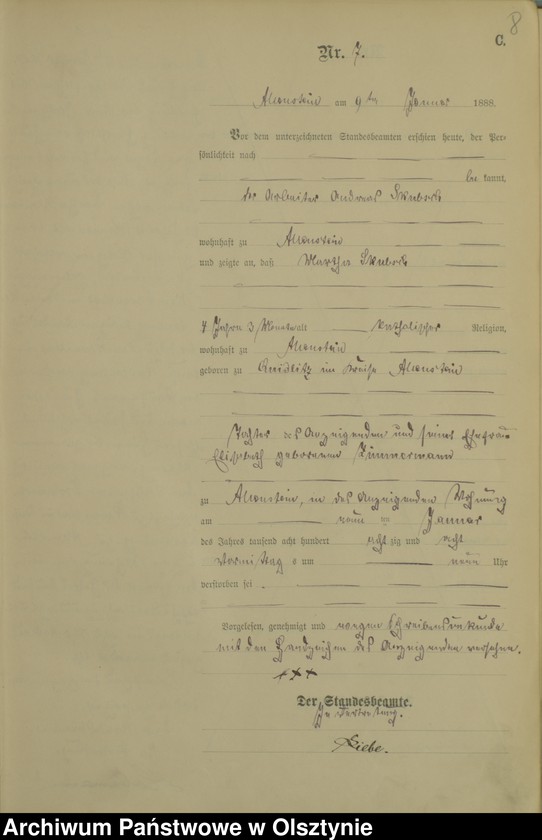 8
C.
Nr. 7.
Allenstein am 9ten Januar 1888.
Vor dem unterzeichneten Standesbeamten erschien heute, der Per-
sönlichkeit nach
be kannt,
der Arbeiter Andreas
wohnhaft zu Allenstein
und zeigte an, daß Martha
4 Jahre 3 Monate alt katholischer Religion,
wohnhaft zu Allenstein
geboren zu im Kreise Allenstein
Tochter des Anzeigenden und seiner Ehefrau
Elisabeth geborenen Zimmermann
zu Allenstein, in des Anzeigenden Wohnung
am neun ten Januar
des Jahres tausend acht hundert acht zig und acht
Vormittag s um neun Uhr
verstorben sei.
Vorgelesen, genehmigt und wegen Schreibensunkunde
mit den Handzeichen des Anzeigenden versehen.
+++
Der Standesbeamte.
In Vertretung.
Liebe.
Archiwum Państwowe w Olsztynie